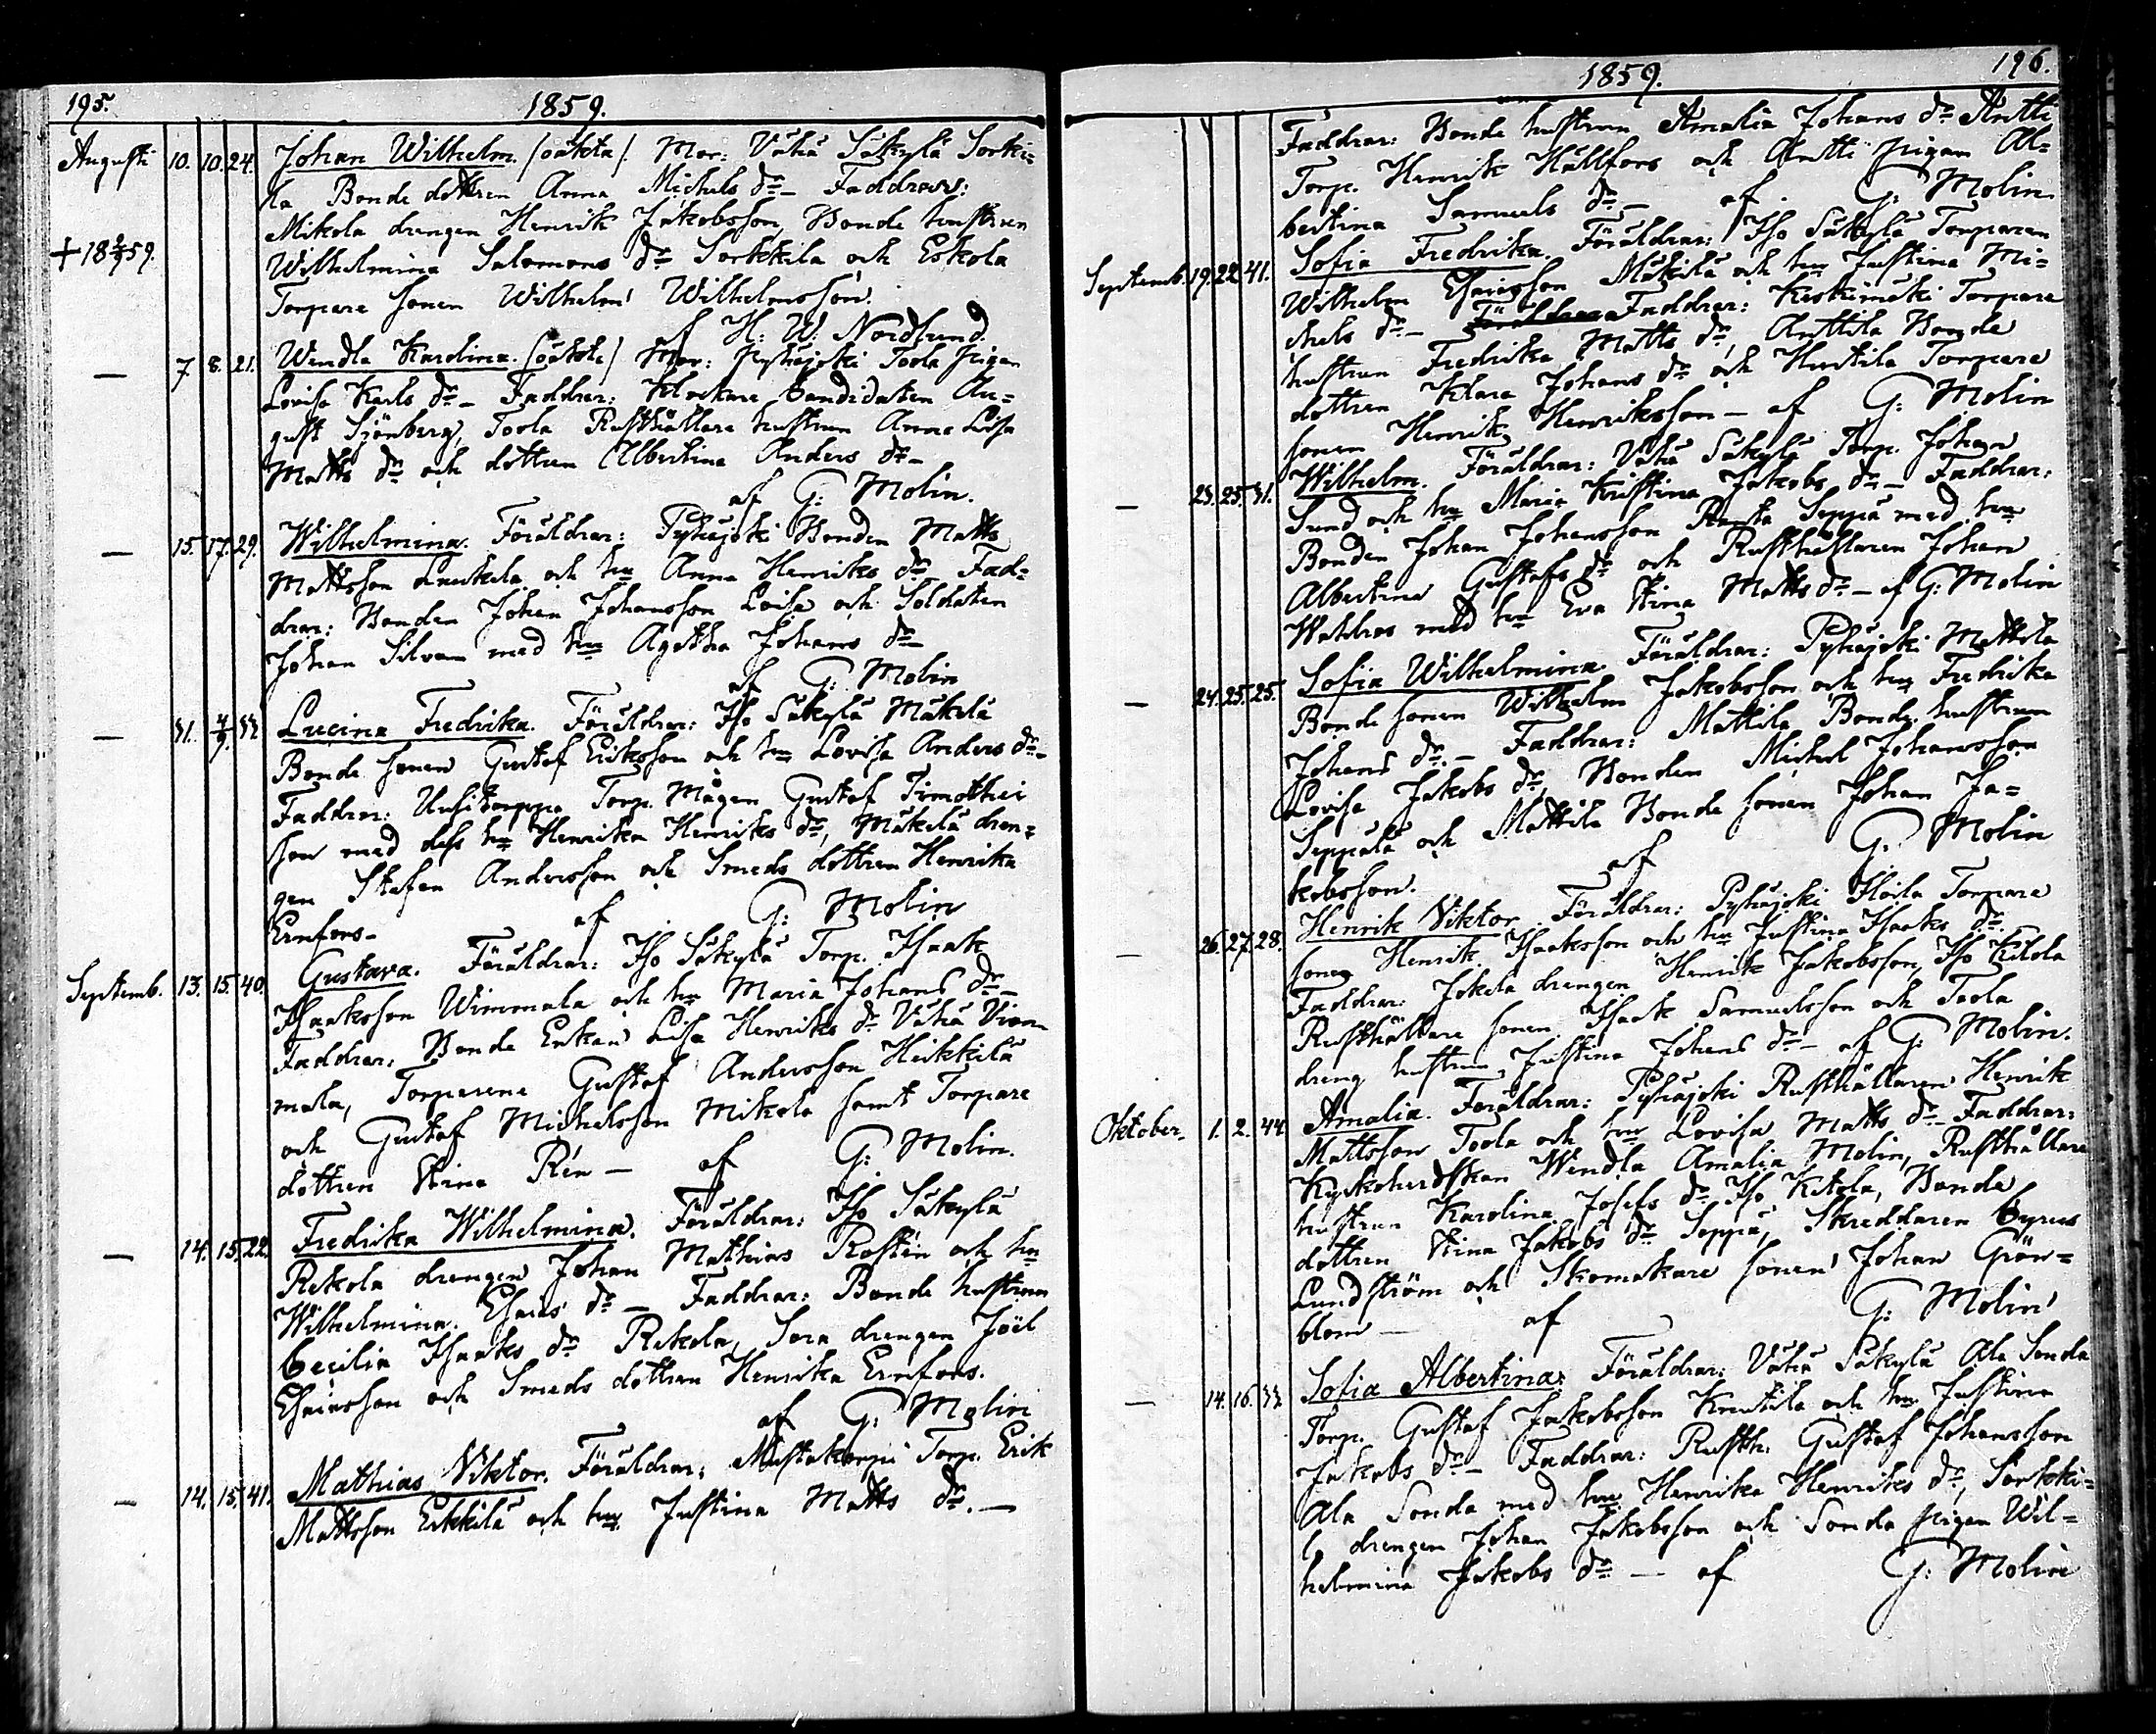 195.
1859.
Augusti 10. 10. 24. Johan Wilhelm. /oäkta/. Mor: Vähä Säkylä Sorki-
la Bonde dottren Anna Michels dr – Faddrar:
Mikola drengen Henrik Jakobsson, Bonde hustrun
+ 18 2/9 59. Wilhelmina Salomons dr Sorkkila och Eskola
Torpare sonen Wilhelm Wilhelmsson.
af H: W: Nordlund.
— 7. 8. 21. Wendla Karolina. /oäkta/ Mor: Pyhäjoki Toola pigan
Lovisa Karls dr – Faddrar: Klockare Candidaten Au=
gust Sjönberg, Toola Rusthållare hustrun Anna Lisa
Matts dr och dottren Albertina Anders dr –
af G: Molin.
— 15. 17. 29. Wilhelmina. Föräldrar: Pyhäjoki Bonden Matts
Mattsson och hu Anna Henriks dr Fad=
drar: Bonden Johan Johansson Loisa och Soldaten
Johan Silvan med hu Agatha Johans dr –
af G: Molin
— 31. 4/9. 33 Lucina Fredrika. Föräldrar: Iso Säkylä Mäkilä
Bonde sonen Gustaf Eriksson och hu Lovisa Anders dr –
Faddrar: Uusitorppa Torp. Mågen Gustaf Timothei
son med dess hu Henrika Henriks dr, Mäkilä dren=
gen Stefan Andersson och Smeds dottren Henrika
Ernfors – af G: Molin
Septemb. 13. 15. 40. Gustava. Föräldrar: Iso Säkylä Torp. Isaak
Isaaksson Wimmala och hu Maria Johans dr –
Faddrar: Bonde Enkan Lisa Henriks dr Vähä Vim-
mala, Torparena Gustaf Andersson Heikkilä
och Gustaf Michelsson Mikola samt Torpare
dottren Stina Rén – af G: Molin.
— 14. 15. 22. Fredrika Wilhelmina. Föräldrar: Iso Säkylä
Rekola drengen Johan Mathias Rostén och hu
Wilhelmina Esaias dr – Faddrar: Bonde hustrun
Cecilia Isaaks dr Rekola, Sora drengen Joël
Esaiasson och Smeds dottren Henrika Ernfors.
af G: Molin
— 14. 15. 41. Mathias Viktor. Föräldrar: Mustakorpi Torp. Erik
Mattsson Erkkilä och hu Justina Matts dr. –
1859.
196.
Faddrar: Bonde hustrun Amalia Johans dr Antti
Torp. Henrik Hällfors och Antti pigan Al=
bertina Samuels dr – af G: Molin
Septemb. 19. 22. 41. Sofia Fredrika. Föräldrar: Iso Säkylä Torparen
Wilhelm Esaiasson Mäkilä och hu Justina Mi=
chels dr – Föräldrar Faddrar: Keskimäki Torpare
hustrun Fredrika Matts dr, Anttila Bonde
dottren Klara Johans dr och Torpare
sonen Henrik Henriksson – af G: Molin
— 23. 25. 31. Wilhelm. Föräldrar: Vähä Säkylä Torp. Johan
Sund och hu Maria Kristina Jakobs dr – Faddrar:
Bonden Johan Johansson Seppä med hu
Albertina Gustafs dr och Rusthållaren Johan
med hu Eva Stina Matts dr – af G: Molin
— 24. 25. 25. Sofia Wilhelmina Föräldrar: Pyhäjoki Mattila
Bonde sonen Wilhelm Jakobsson och hu Fredrika
Johans dr. – Faddrar: Mattila Bonde hustrun
Lovisa Jakobs dr, Bonden Michel Johansson
Seppälä och Mattila Bonde sonen Johan Ja=
kobsson. af G: Molin
— 26. 27. 28. Henrik Viktor. Föräldrar: Pyhäjoki Torpare
sonen Henrik Isaaksson och hu Justina Isaaks dr.
Faddrar: Jokela drengen Henrik Jakobsson, Iso Kitola
Rusthållare sonen Isaak Samuelsson och Toola
dreng hustrun Justina Johans dr – af G: Molin.
Oktober. 1. 2. 44 Amalia. Föräldrar: Pyhäjoki Rusthållaren Henrik
Mattsson Toola och hu Lovisa Matts dr Faddrar:
Kyrkoherdskan Wendla Amalia Molin, Rusthållare
hustrun Karolina Josefs dr Iso Kitola, Bonde
dottren Stina Jakobs dr Seppä, Skreddaren Cyrus
Lundström och Skomakare sonen Johan Grön=
blom – af G: Molin
— 14. 16. 33 Sofia Albertina: Föräldrar: Vähä Säkylä Ala Sonda
Torp. Gustaf Jakobsson Knutila och hu Justina
Jakobs dr – Faddrar: Rusth. Gustaf Johansson
Ala Sonda med hu Henrika Henriks dr, Sorkki=
la drengen Johan Jakobsson och Sonda pigan Wil=
helmina Jakobs dr – af G: Molin